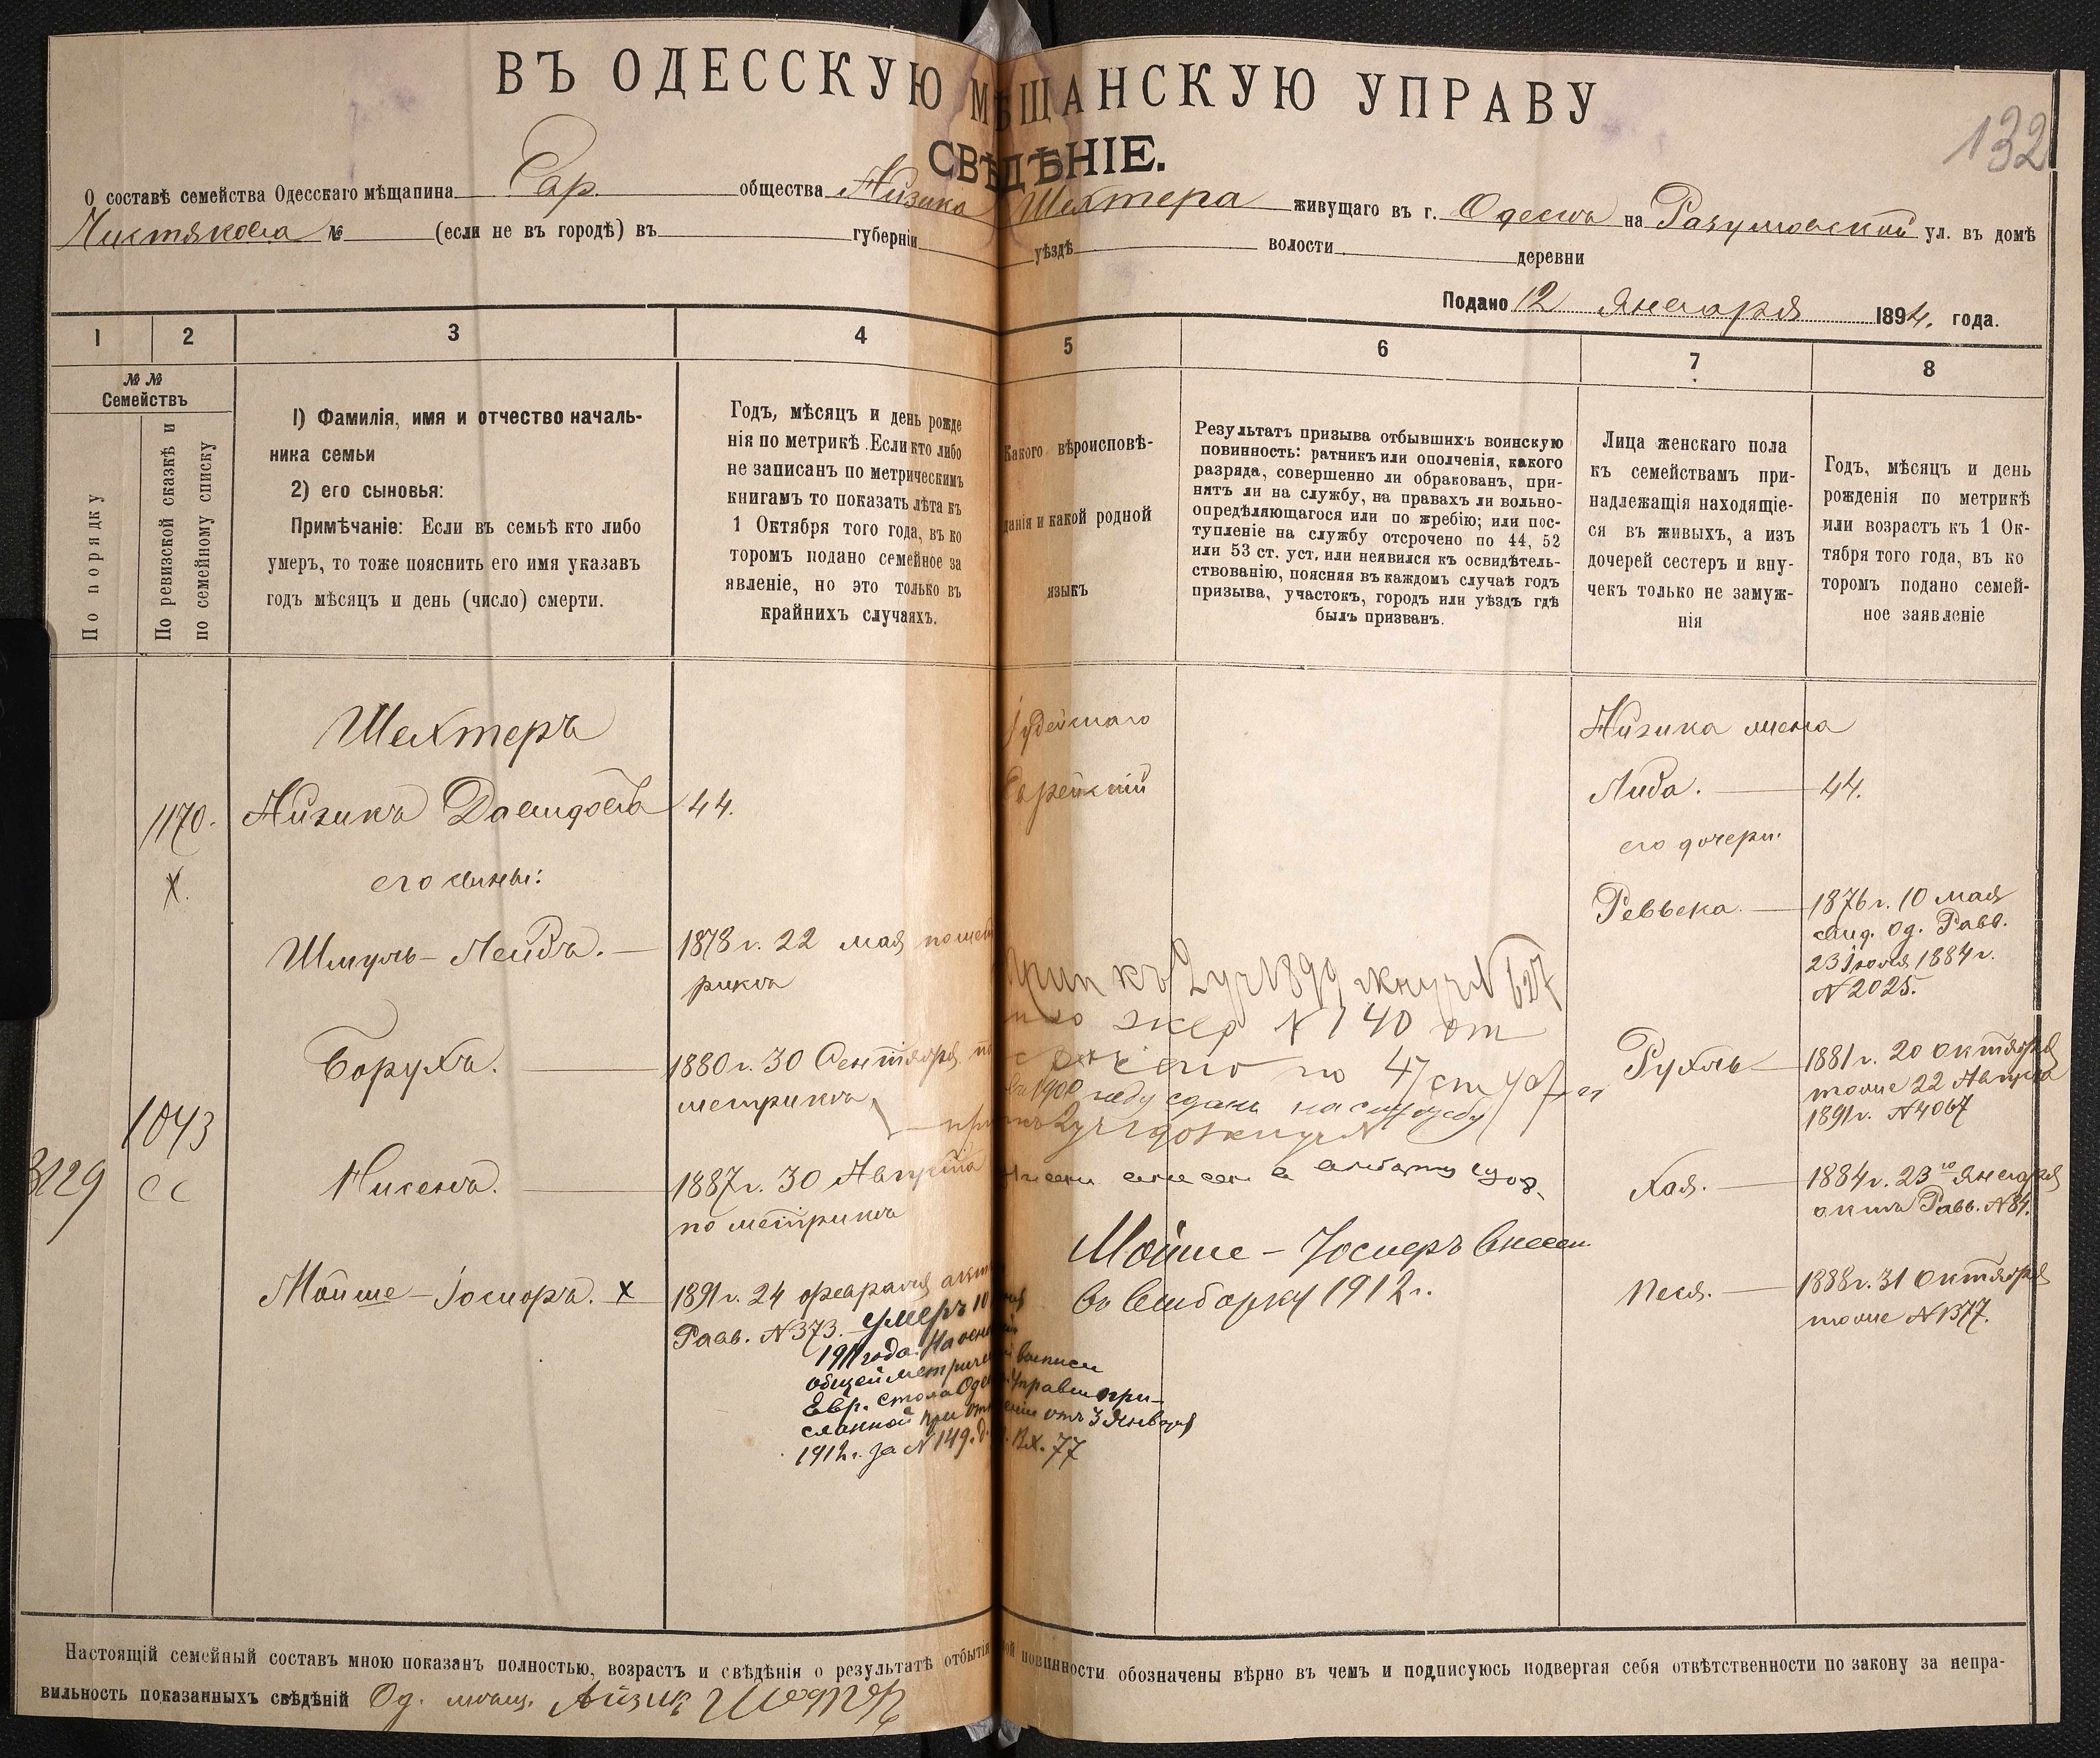 ВЪ ОДЕССКУЮ МѢЩАНСКУЮ УПРАВУ
132
СВѢДѢНІЕ.
О составѣ семейства Одесскаго мѣщанина Сар. общества Айзика Шехтера живущаго въ г. Одессѣ на Разумовской ул. въ домѣ
Чистякова № (если не въ городѣ) въ губерніи уѣздѣ волости деревни
Подано 12 Января 1894. года.
1 2 3 4 5 6 7 8
№ №
Семействъ
По порядку
По ревизской сказкѣ и
по семейному списку
1) Фамилія, имя и отчество началь-
ника семьи
2) его сыновья:
Примѣчаніе: Если въ семьѣ кто либо
умеръ, то тоже пояснить его имя указавъ
годъ мѣсяцъ и день (число) смерти.
Годъ, мѣсяцъ и день рожде
нія по метрикѣ. Если кто либо
не записанъ по метрическимъ
книгамъ то показать лѣта къ
1 Октября того года, въ ко
торомъ подано семейное за
явленіе, но это только въ
крайнихъ случаяхъ.
Какого вѣроисповѣ-
данія и какой родной
языкъ
Результатъ призыва отбывшихъ воинскую
повинность: ратникъ или ополченія, какого
разряда, совершенно ли обракованъ, при-
нятъ ли на службу, на правахъ ли вольно-
опредѣляющагося или по жребію; или пос-
тупленіе на службу отсрочено по 44, 52
или 53 ст. уст. или неявился къ освидѣтель-
ствованію, поясняя въ каждомъ случаѣ годъ
призыва, участокъ, городъ или уѣздъ гдѣ
былъ призванъ.
Лица женскаго пола
къ семействамъ при-
надлежащія находящіе-
ся въ живыхъ, а изъ
дочерей сестеръ и вну-
чекъ только не замуж-
нія
Годъ, мѣсяцъ и день
рожденія по метрикѣ
или возрастъ къ 1 Ок-
тября того года, въ ко
торомъ подано семей-
ное заявленіе
Шехтеръ
Іудейскаго
Айзика жена
1170. Айзикъ Давидовъ 44.
Еврейскій
Либа. 44.
х.
его сыны:
его дочери:
Шмуль-Лейбъ. 1878 г. 22 мая по мет
рикѣ
Реввека. 1876 г. 10 мая
свид. Од. Равв.
23 Іюля 1884 г.
N 2025.
къ 2 уч 1899 N 627
N 740 от
по 47 ст
Борухъ. 1880 г. 30 Сентября по
метрикѣ
въ 1900 году сданъ на службу
Рухль 1881 г. 20 Октября
тоже 22 Августа
1891 г. N 4067
1043
3129
Нисенъ. 1887 г. 30 Августа
по метрикѣ
Хая. 1884 г. 23 го Января
актъ Равв. N 84.
Мойше-Іосифъ Внесен
въ выборку 1912 г.
Мойше-Іосифъ. х 1891 г. 24 февраля актъ
Равв. N 373. умеръ 10
1911 года. На основ
общей метрич выписи
Евр. стола Одес Управы при-
сланной при отн отъ 3 Января
1912 г. за N 149. Вх. 77
Песя. 1888 г. 31 Октября
тоже N 1377.
Настоящій семейный составъ мною показанъ полностью, возрастъ и свѣдѣнія о результатѣ отбытія повинности обозначены вѣрно въ чемъ и подписуюсь подвергая себя отвѣтственности по закону за непра-
вильность показанныхъ свѣдѣній Од. мѣщ. Айзик Шехтер